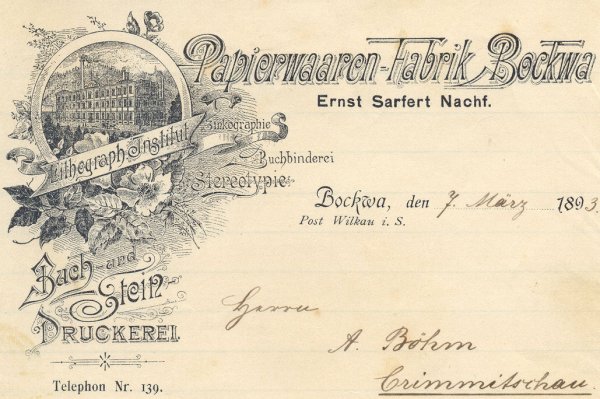 Papierwaaren-Fabrik Bockwa
Ernst Sarfert Nachf.
Lithograph. Institut
Zinkographie
Buchbinderei
Stereotypie
Buch- und
Stein-
DRUCKEREI.
Telephon Nr. 139.
Bockwa, den 7. März 1893.
Post Wilkau i. S.
Herrn
A. Böhm
Crimmitschau.